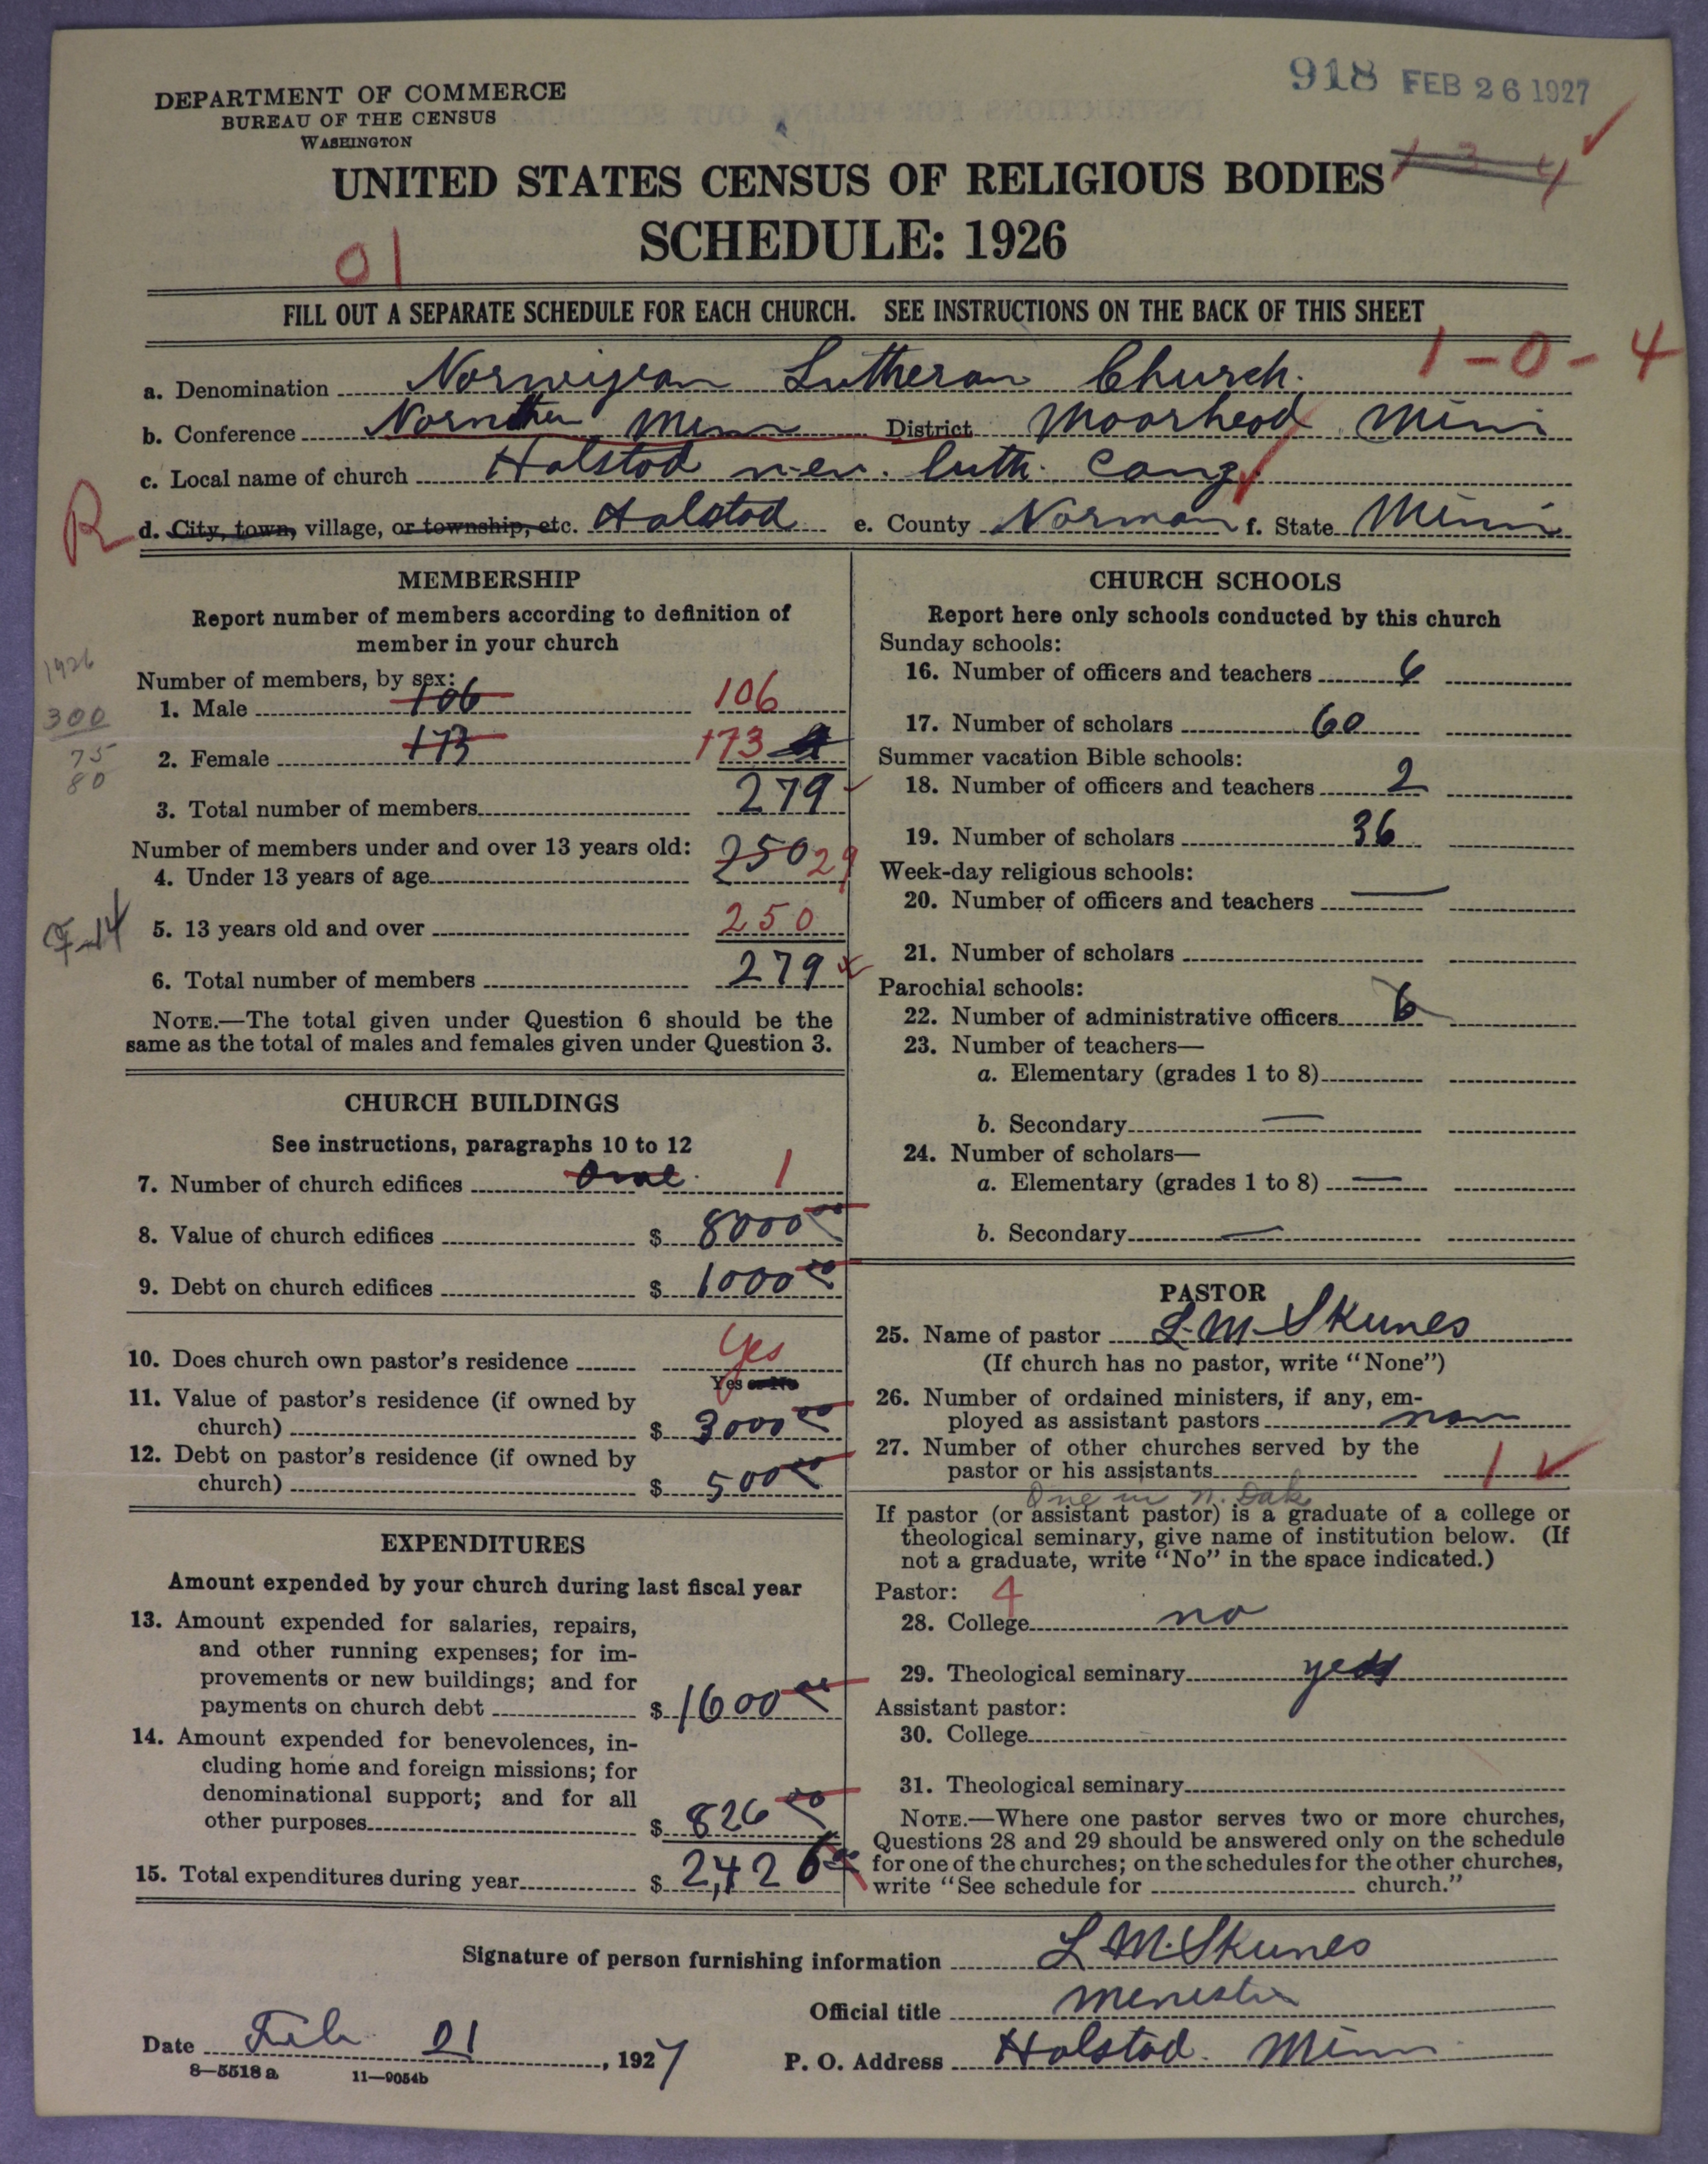 918 FEB 26 1927
DEPARTMENT OF COMMERCE
BUREAU OF THE CENSUS
WASHINGTON
UNITED STATES CENSUS OF RELIGIOUS BODIES 1 3 4
SCHEDULE: 1926
01
FILL OUT A SEPARATE SCHEDULE FOR EACH CHURCH. SEE INSTRUCTIONS ON THE BACK OF THIS SHEET
1-0-4
a. Denomination Norwigean Lutheran Church.
b. Conference Minn District Moorhead Minn
c. Local name of church Halstad Luth. Cong
R
d. City, town, village, or township, etc. Halstad e. County Norman f. State Minn
MEMBERSHIP
Report number of members according to definition of
member in your church
1926
Number of members, by sex:
1. Male 106 106
300
2. Female 173 173
75
80
3. Total number of members 279
Number of members under and over 13 years old:
4. Under 13 years of age 250 29
5. 13 years old and over 250
6. Total number of members 279
NOTE.—The total given under Question 6 should be the
same as the total of males and females given under Question 3.
CHURCH BUILDINGS
See instructions, paragraphs 10 to 12
7. Number of church edifices One 1
8. Value of church edifices $ 8000 00
9. Debt on church edifices $ 1000 00
10. Does church own pastor's residence Yes
Yes or No
11. Value of pastor's residence (if owned by
church) $ 3000 00
12. Debt on pastor's residence (if owned by
church) $ 500 00
EXPENDITURES
Amount expended by your church during last fiscal year
13. Amount expended for salaries, repairs,
and other running expenses; for im-
provements or new buildings; and for
payments on church debt $ 1600 00
14. Amount expended for benevolences, in-
cluding home and foreign missions; for
denominational support; and for all
other purposes $ 826 00
15. Total expenditures during year $ 2,426 00
CHURCH SCHOOLS
Report here only schools conducted by this church
Sunday schools:
16. Number of officers and teachers 6
17. Number of scholars 60
Summer vacation Bible schools:
18. Number of officers and teachers 2
19. Number of scholars 36
Week-day religious schools:
20. Number of officers and teachers —
21. Number of scholars
Parochial schools:
22. Number of administrative officers 6
23. Number of teachers—
a. Elementary (grades 1 to 8)
b. Secondary —
24. Number of scholars—
a. Elementary (grades 1 to 8) —
b. Secondary —
PASTOR
25. Name of pastor L. M. Skunes
(If church has no pastor, write "None")
26. Number of ordained ministers, if any, em-
ployed as assistant pastors non
27. Number of other churches served by the
pastor or his assistants 1
One in N. Dak
If pastor (or assistant pastor) is a graduate of a college or
theological seminary, give name of institution below. (If
not a graduate, write "No" in the space indicated.)
Pastor: 4
28. College no
29. Theological seminary yes
Assistant pastor:
30. College
31. Theological seminary
NOTE.—Where one pastor serves two or more churches,
Questions 28 and 29 should be answered only on the schedule
for one of the churches; on the schedules for the other churches,
write "See schedule for church."
Signature of person furnishing information L. M. Skunes
Official title
Date Feb 21, 1927
P. O. Address Halstad Minn
8—5518 a 11—9054b